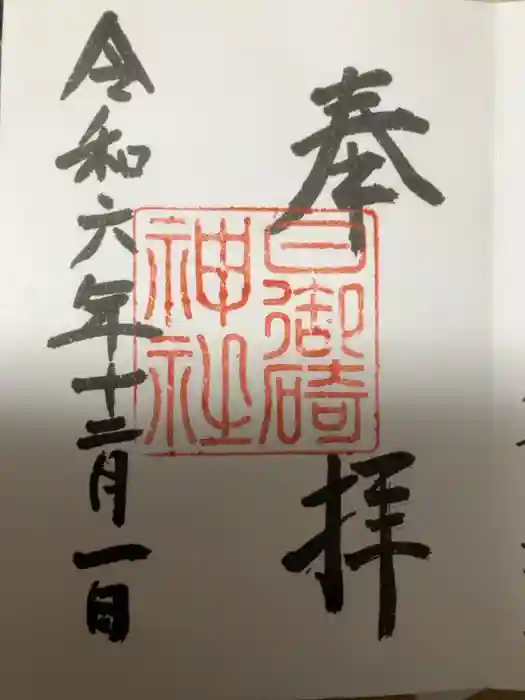 奉拝
日御碕
神社
令和六年十二月一日